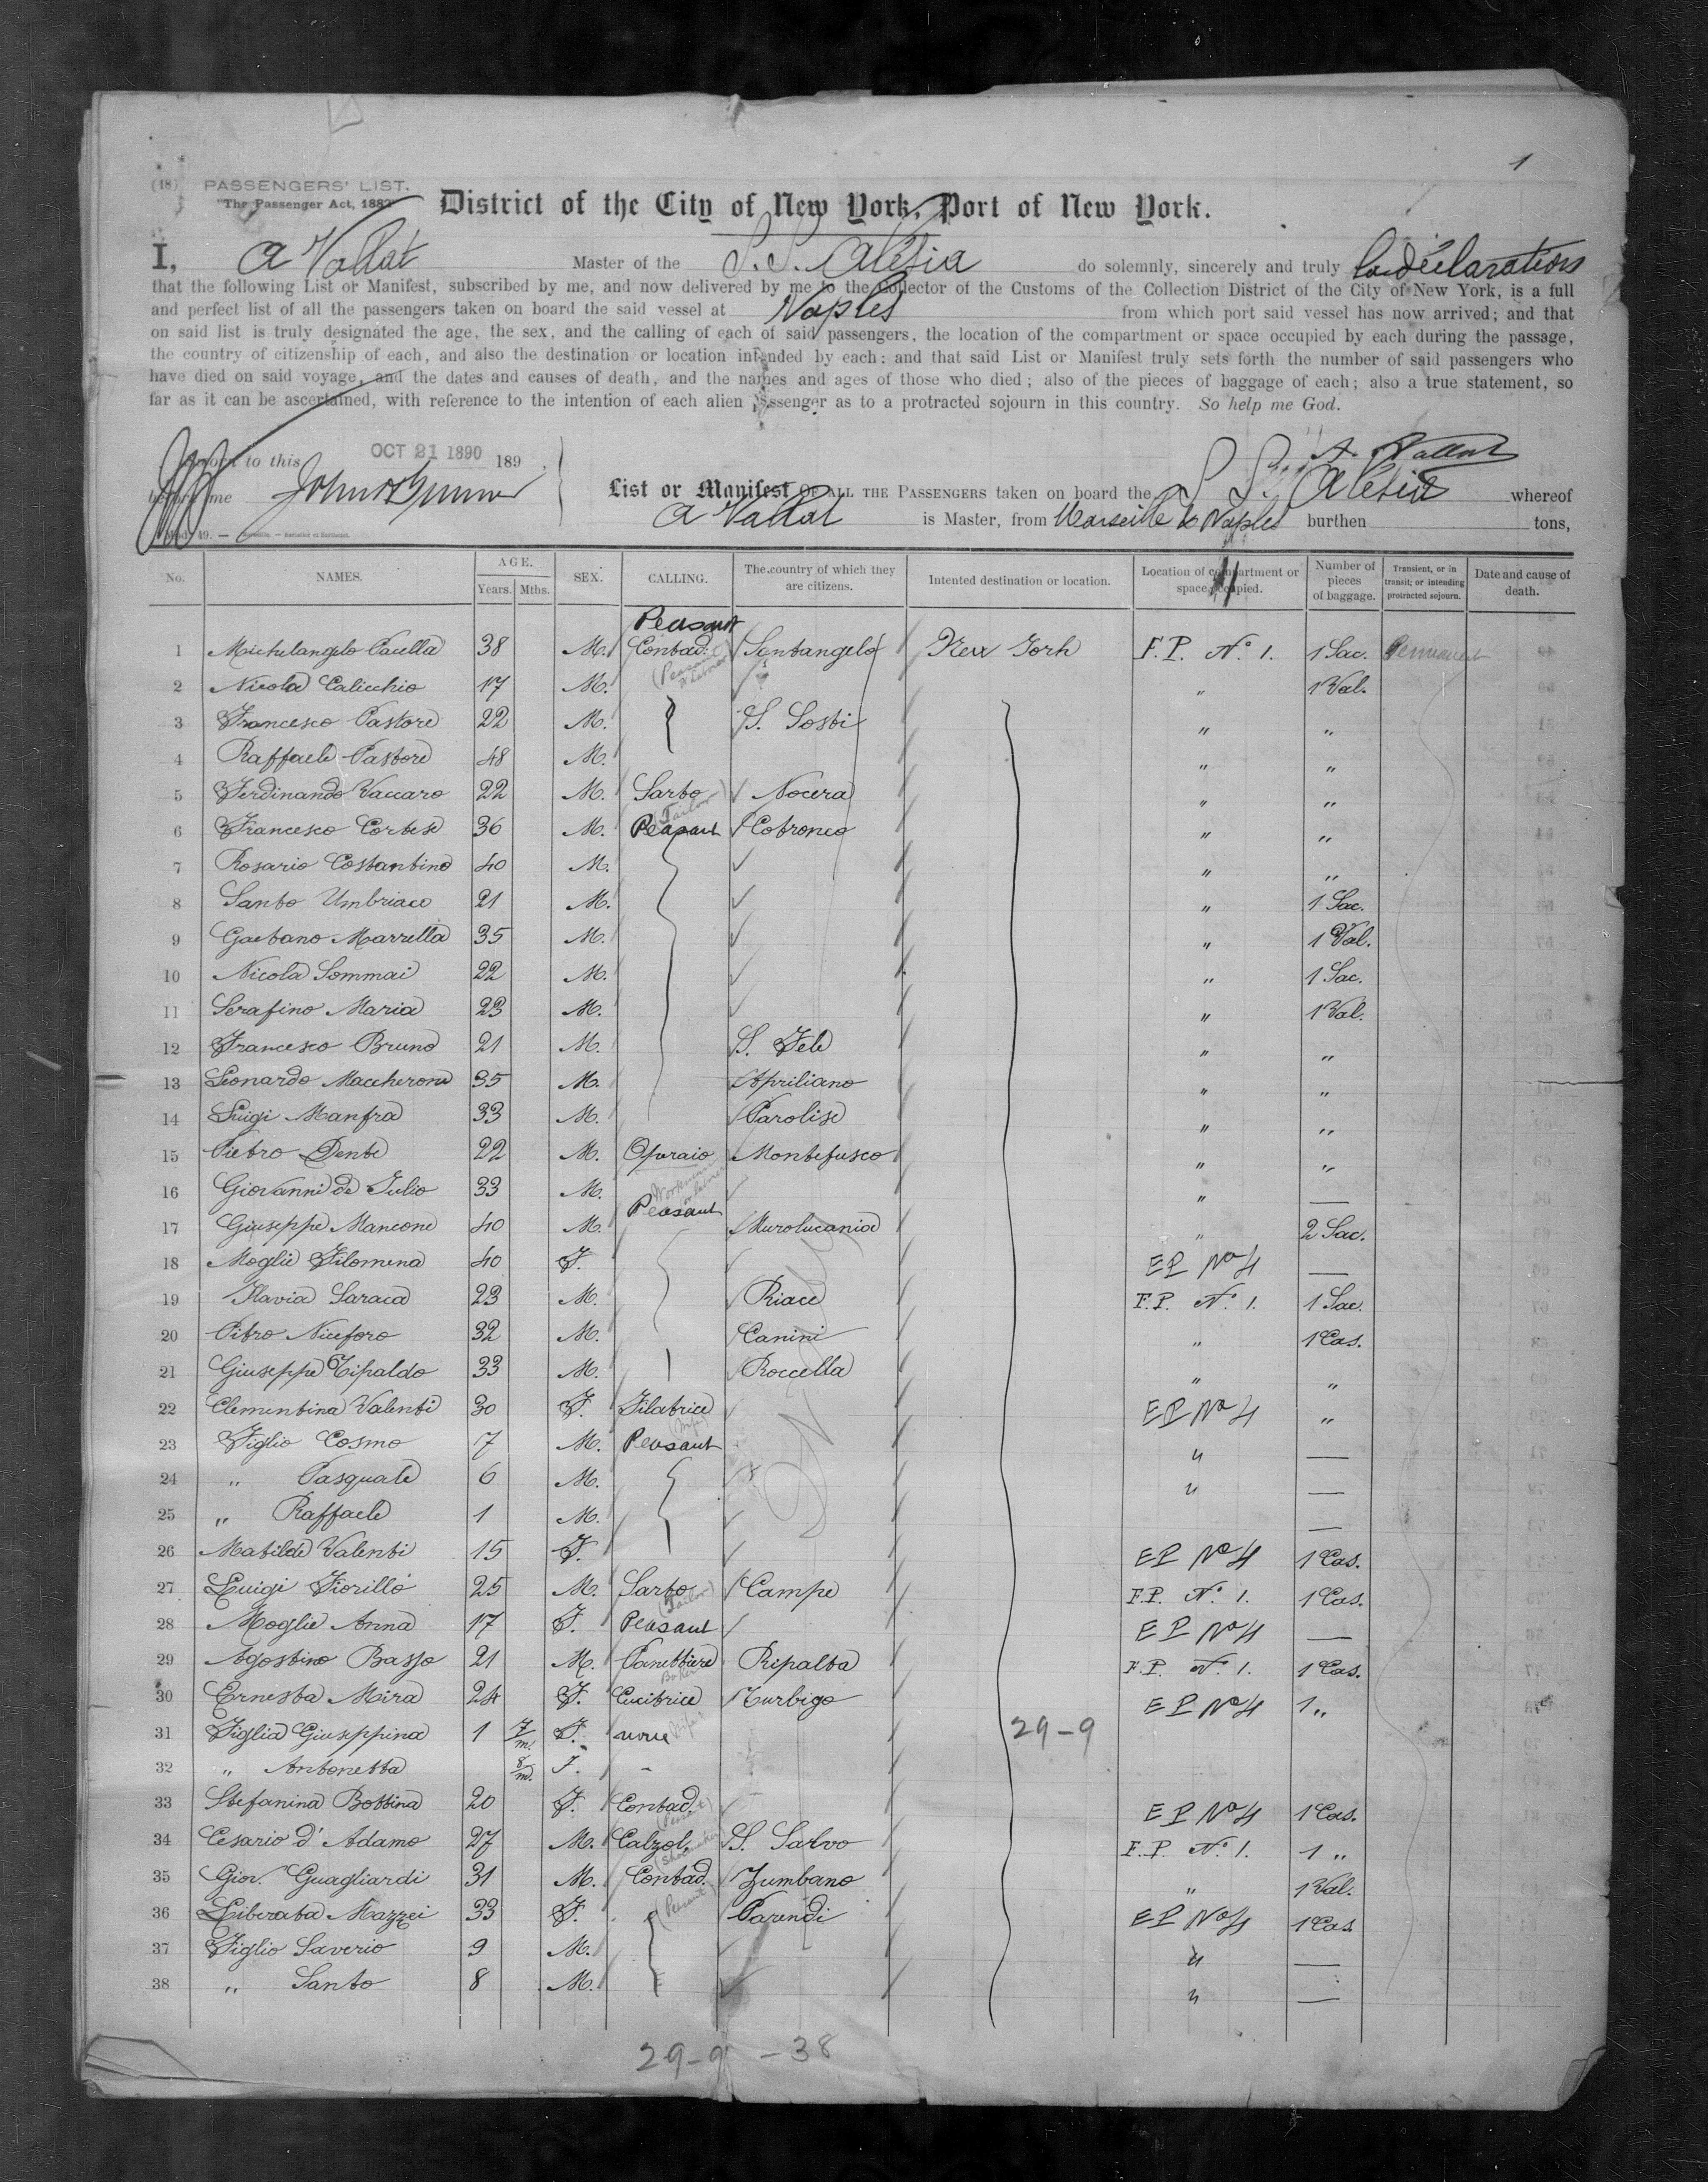 1
(18) PASSENGERS' LIST.
"The Passenger Act, 1882"
District of the City of New York, Port of New York.
I, A Vallat Master of the S.S. Alésia do solemnly, sincerely and truly
that the following List or Manifest, subscribed by me, and now delivered by me to the Collector of the Customs of the Collection District of the City of New York, is a full
and perfect list of all the passengers taken on board the said vessel at Naples from which port said vessel has now arrived; and that
on said list is truly designated the age, the sex, and the calling of each of said passengers, the location of the compartment or space occupied by each during the passage,
the country of citizenship of each, and also the destination or location intended by each; and that said List or Manifest truly sets forth the number of said passengers who
have died on said voyage, and the dates and causes of death, and the names and ages of those who died; also of the pieces of baggage of each; also a true statement, so
far as it can be ascertained, with reference to the intention of each alien passenger as to a protracted sojourn in this country. So help me God.
A. Vallat
Sworn to this OCT 21 1890 189
before me
List or Manifest OF ALL THE PASSENGERS taken on board the S S. Alésia whereof
A Vallat is Master, from Marseille & Naples burthen tons,
Mod. 49. —
No. NAMES. AGE. Years. Mths. SEX. CALLING. The country of which they are citizens. Intented destination or location. Location of compartment or space occupied. Number of pieces of baggage. Transient, or in transit; or intending protracted sojourn. Date and cause of death.
Peasant
1 Michelangelo Caiella 38 M. Contad. Santangelo New York F.P. No. 1. 1 Sac. Permanent
(Peasant
2 Nicola Calicchio 17 M. " 1 Val.
3 Francesco Pastore 22 M. S. Sosti " "
4 Raffaele Pastore 48 M. " "
5 Ferdinando Vaccaro 22 M. Sarto Nocera " "
(Tailor)
6 Francesco Cortese 36 M. Peasant Cotroneo " "
7 Rosario Costantino 40 M. " "
8 Santo Umbriaco 21 M. " 1 Sac.
9 Gaetano Marrella 35 M. " 1 Val.
10 Nicola Sommai 22 M. " 1 Sac.
11 Serafino Maria 23 M. " 1 Val.
12 Francesco Bruno 21 M. S. Fele " "
13 Leonardo Maccherone 35 M. Apriliano " "
14 Luigi Manfra 33 M. Parolise " "
15 Pietro Dente 22 M. Operaio Montefusco " "
(Workman
16 Giovanni de Julio 33 M. " —
Peasant
17 Giuseppe Mancone 40 M. Murolucania " 2 Sac.
18 Moglie Filomena 40 F. E P No 4 —
19 Flavia Saraca 23 M. Riace F.P. No. 1. 1 Sac.
20 Pitro Niceforo 32 M. Canini " 1 Cas.
21 Giuseppe Tipaldo 33 M. Roccella " "
22 Clementina Valenti 30 F. Filatrice E P No 4 "
(Wife)
23 Figlio Cosmo 7 M. Peasant " —
24 " Pasquale 6 M. " —
25 " Raffaele 1 M. —
26 Matilde Valenti 15 F. E P No 4 1 Cas.
27 Luigi Fiorillo 25 M. Sarto Campe F.P. No. 1. 1 Cas.
(Tailor)
28 Moglie Anna 17 F. Peasant E P No 4 —
29 Agostino Basso 21 M. Panettiere Ripalta F.P. No. 1. 1 Cas.
Baker
30 Ernesta Mira 24 F. Cucitrice Turbigo E P No 4 1 "
Wife
31 Figlia Giuseppina 1 7 m. F. none 29-9
32 " Antonetta 8 m. F. -
33 Stefanina Bottina 20 F. Contad. E P No 4 1 Cas.
(Peasant)
34 Cesario d' Adamo 27 M. Calzol. S. Salvo F.P. No. 1. 1 "
(Shoemaker)
35 Giov. Guagliardi 31 M. Contad. Zumbano " 1 Val.
(Peasant)
36 Liberata Mazzei 33 F. Parendi E P No 4 1 Cas
37 Figlio Saverio 9 M. " —
38 " Santo 8 M. " —
29-9 -38